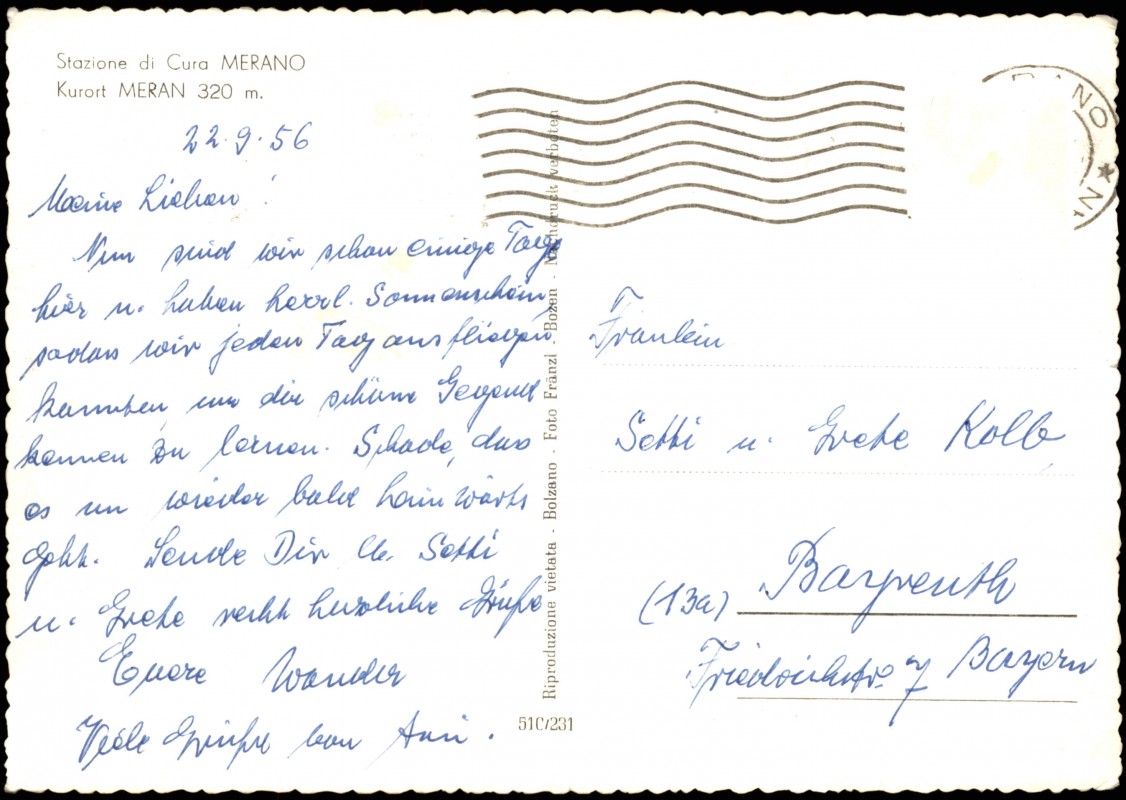 Stazione di Cura MERANO
Kurort MERAN 320 m.
22.9.56
Meine Lieben!
Nun sind wir schon einige Tage
hier u. haben herrl. Sonnenschein,
sodass wir jeden Tag ausfliegen
konnten, um die schöne Gegend
kennen zu lernen. Schade, dass
es nun wieder bald heimwärts
geht. Sende Dir lb. Setti
u. Grete recht herzliche Grüße
Euere
Viele Grüße von Ani.
Riproduzione vietata - Bolzano - Foto Fränzi - Bozen - Nachdruck verboten
51C/231
NO * N
Fräulein
Setti u. Grete Kolb
(13a) Bayreuth
Friedrichstr. 7 Bayern